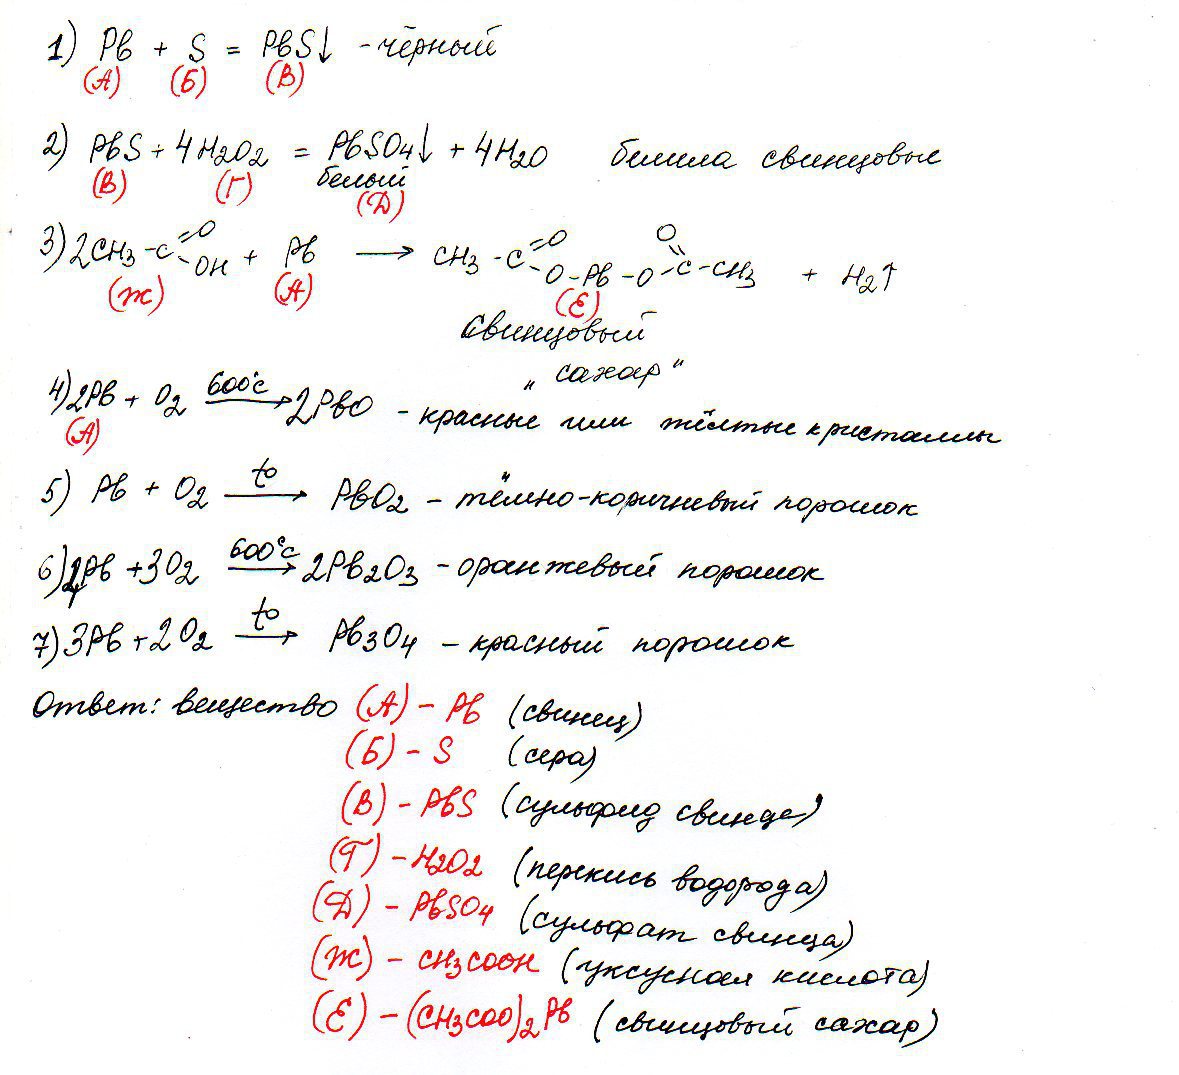 1) Pb + S = PbS↓ - чёрный
(А) (Б) (В)
2) PbS + 4H2O2 = PbSO4↓ + 4H2O белила свинцовые
(В) (Г) белый
(Д)
3) 2CH3-C=O-OH + Pb → CH3-C=O-O-Pb-O-C=O-CH3 + H2↑
(Ж) (А) (Е)
Свинцовый
"сахар"
4) 2Pb + O2 600°C → 2PbO - красные или жёлтые кристаллы
(А)
5) Pb + O2 t° → PbO2 - тёмно-коричневый порошок
6) 4Pb + 3O2 600°C → 2Pb2O3 - оранжевый порошок
7) 3Pb + 2O2 t° → Pb3O4 - красный порошок
Ответ: вещество (А) - Pb (свинец)
(Б) - S (сера)
(В) - PbS (сульфид свинца)
(Г) - H2O2 (перекись водорода)
(Д) - PbSO4 (сульфат свинца)
(Ж) - CH3COOH (уксусная кислота)
(Е) - (CH3COO)2Pb (свинцовый сахар)